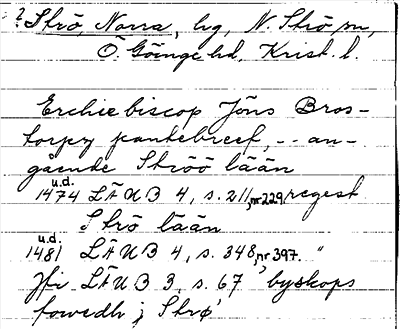 ? Strö, Norra, by, N. Strö sn,
Ö. Göinge hd, Krist. l.
Erchiebiscop Jöns Bros-
torpz pantebreef, - - an-
gående Ströö lään
u.d.
1474 LÄUB 4, s. 211, nr 229. regest
Strö lään
u.d.
1481 LÄUB 4, s. 348, nr 397. "
Jfr LÄUB 3, s. 67 byskops
fowedh j Strø